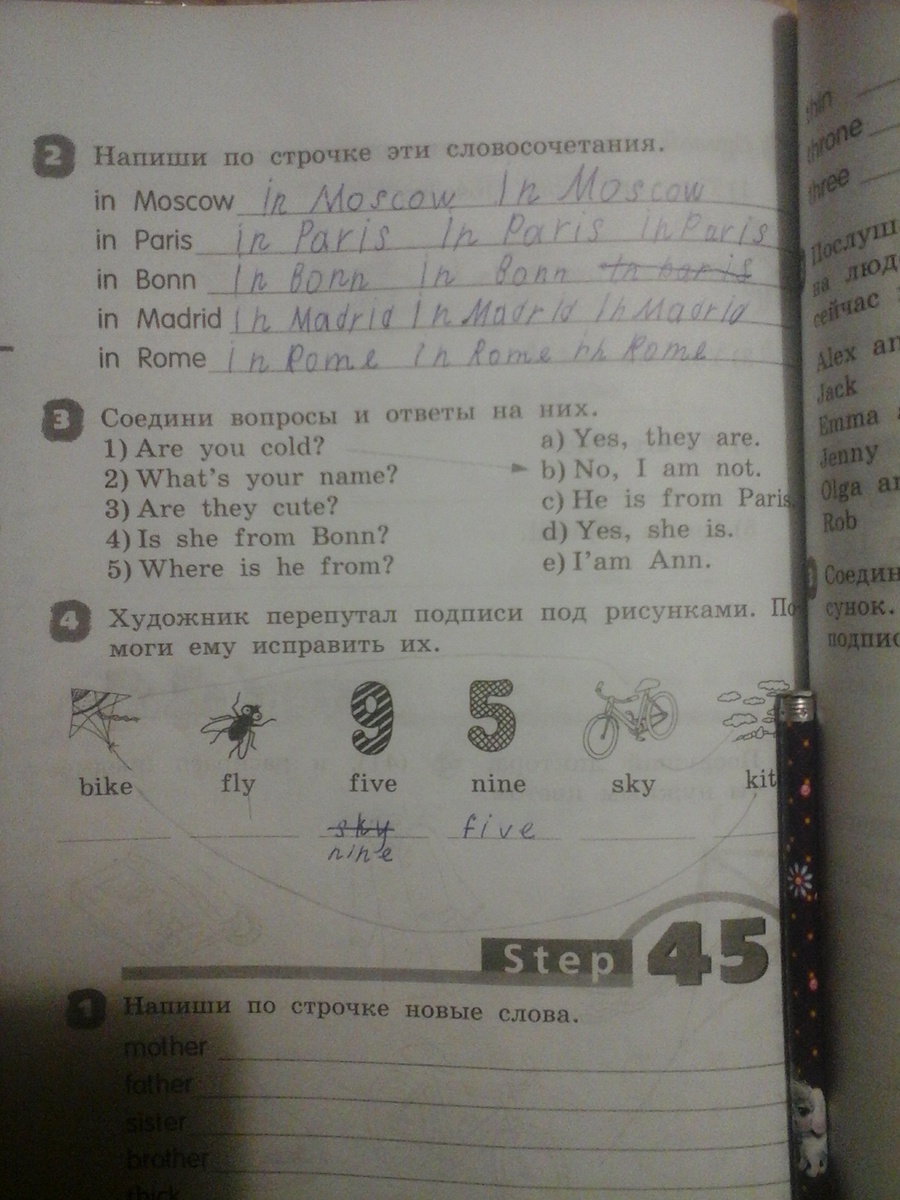 2 Напиши по строчке эти словосочетания.
in Moscow in Moscow In Moscow
in Paris in Paris In Paris in Paris
in Bonn In Bonn In Bonn In Paris
in Madrid In Madrid In Madrid In Madrid
in Rome in Rome in Rome in Rome
3 Соедини вопросы и ответы на них.
1) Are you cold? a) Yes, they are.
2) What's your name? b) No, I am not.
3) Are they cute? c) He is from Paris
4) Is she from Bonn? d) Yes, she is.
5) Where is he from? e) I'am Ann.
4 Художник перепутал подписи под рисунками. По
моги ему исправить их.
9 5
bike fly five nine sky kit
sky five
nine
Step 45
1 Напиши по строчке новые слова.
mother
father
sister
brother
thick
thin
throne
three
Послуш
на люд
сейчас
Alex an
Jack
Emma a
Jenny
Olga an
Rob
Соедин
сунок.
подпис